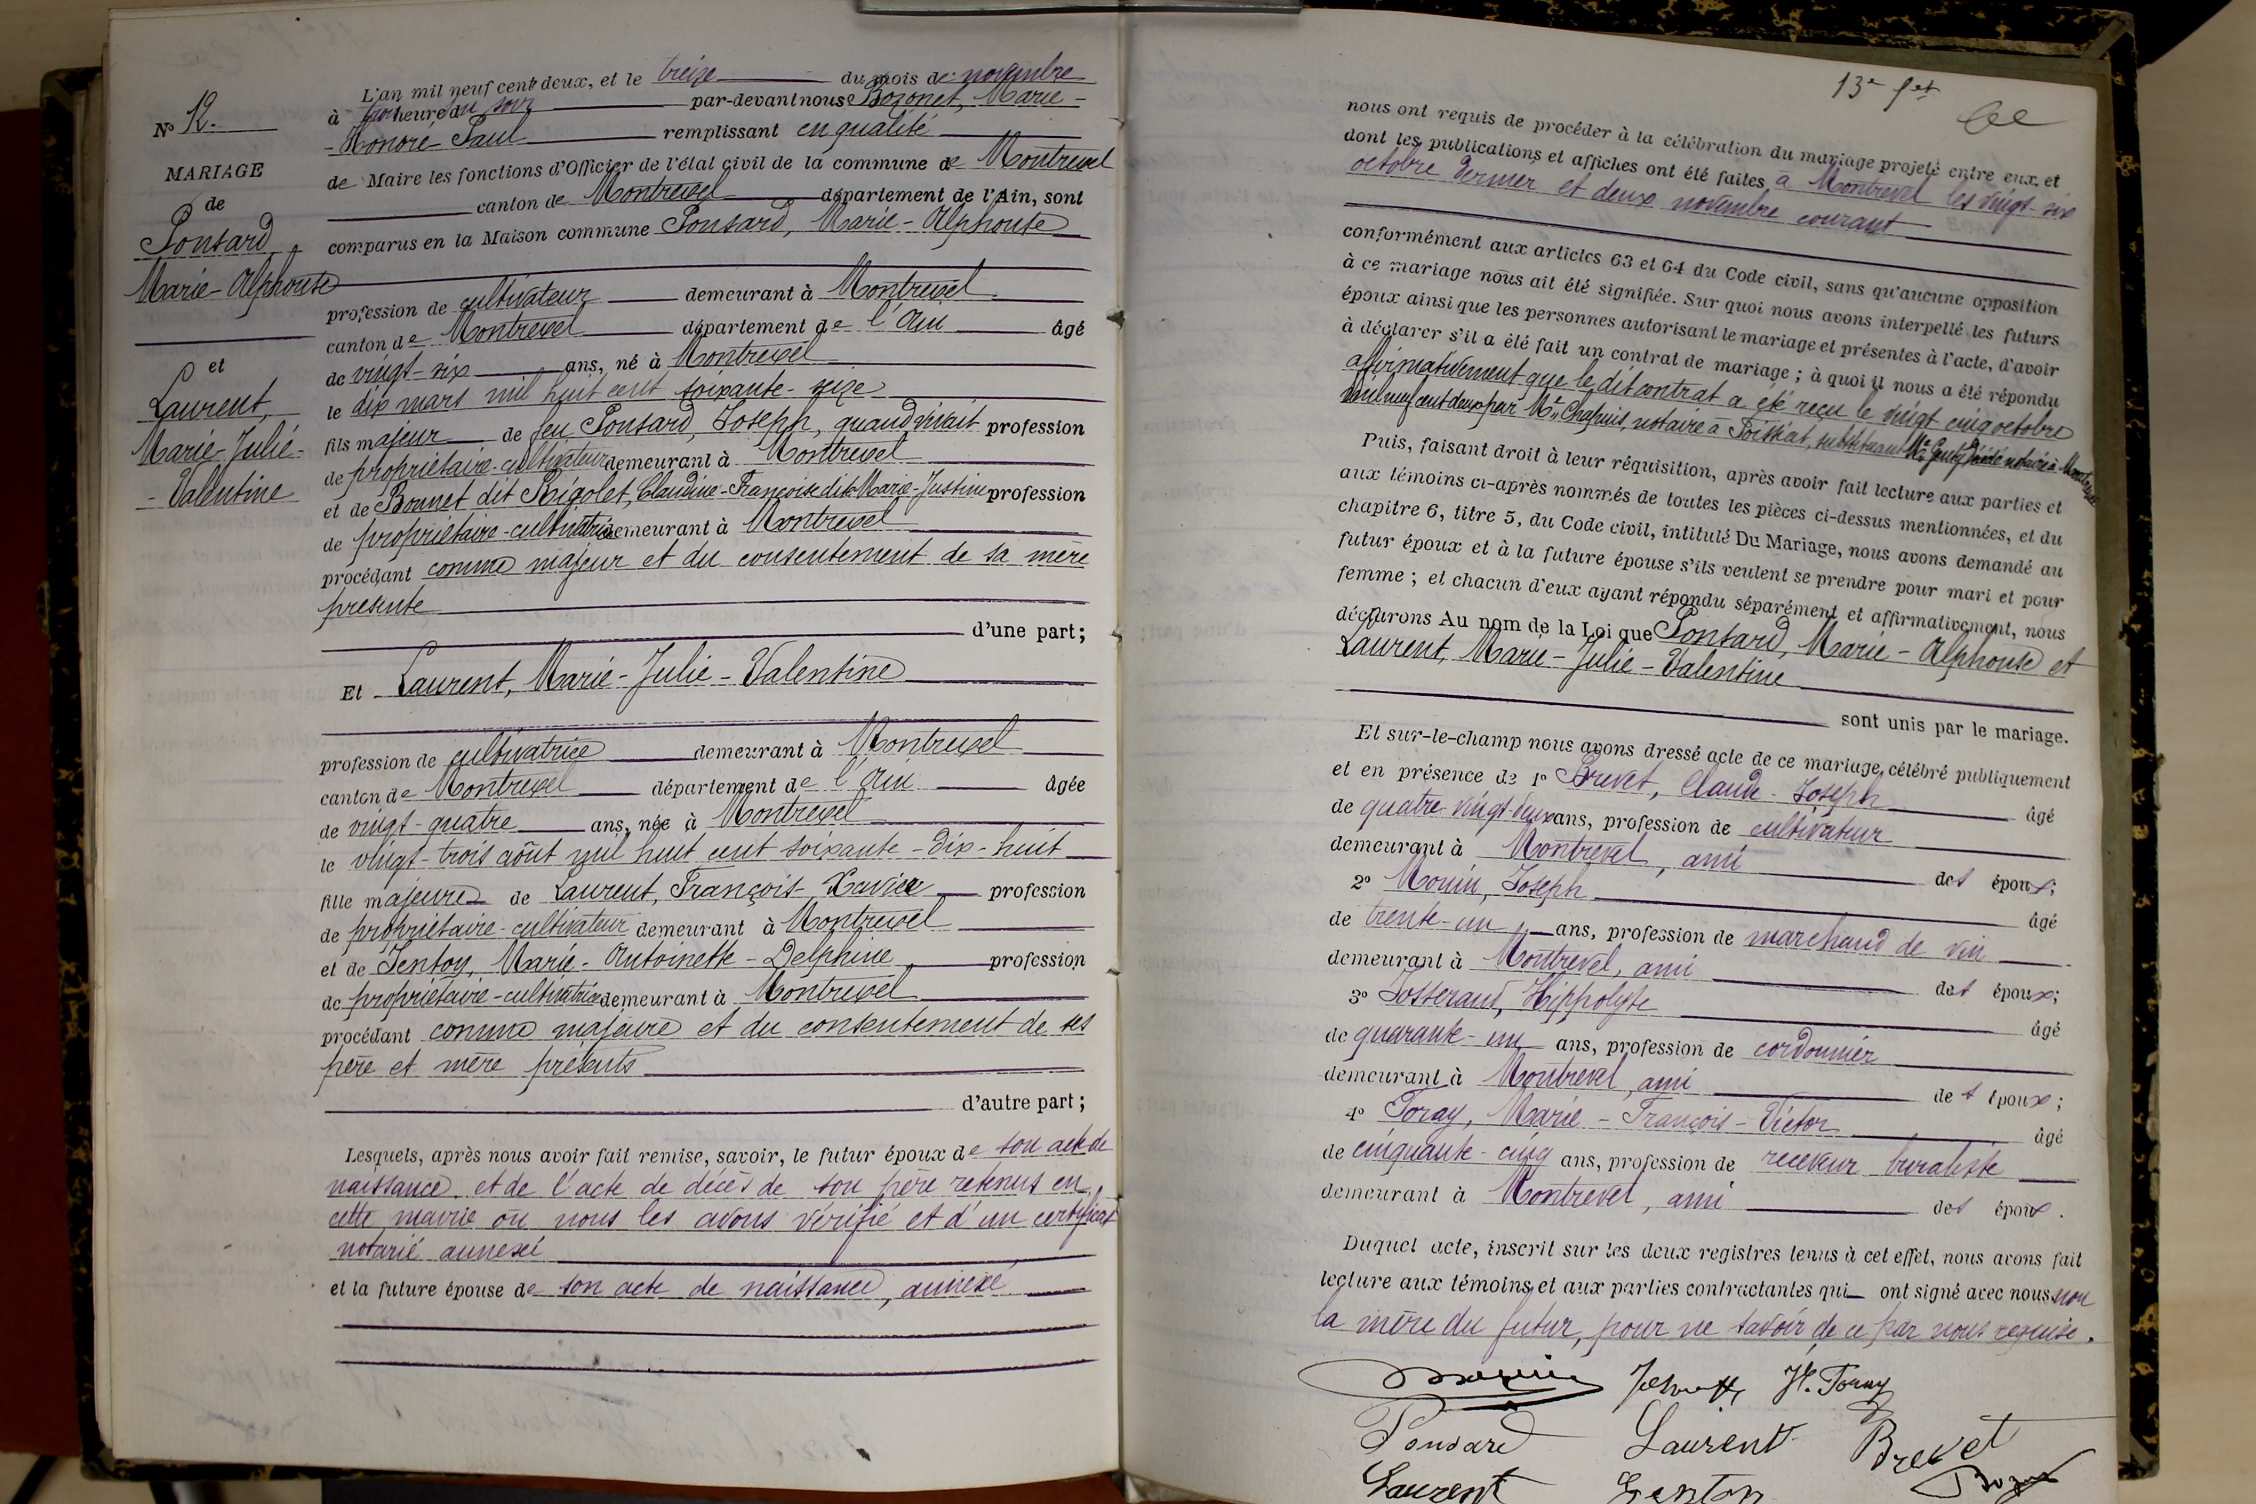 L'an mil neuf cent deux, et le treize du mois de novembre
à heure du soir par-devant nous Bozonet, Marie-
-Honoré-Paul remplissant en qualité
de Maire les fonctions d'Officier de l'état civil de la commune de Montrevel
canton de Montrevel département de l'Ain, sont
comparus en la Maison commune Ponsard, Marie-Alphonse
profession de cultivateur demeurant à Montrevel
canton de Montrevel département de l'Ain âgé
de vingt-six ans, né à Montrevel
le dix mars mil huit cent soixante-seize
fils majeur de feu Ponsard, Joseph, quand vivait profession
de propriétaire-cultivateur demeurant à Montrevel
et de Bonnet dit Rigolet, Claudine-Françoise dite Marie-Justine profession
de propriétaire-cultivatrice demeurant à Montrevel
procédant comme majeur et du consentement de sa mère
présente
d'une part;
Et Laurent, Marie-Julie-Valentine
profession de cultivatrice demeurant à Montrevel
canton de Montrevel département de l'Ain âgée
de vingt-quatre ans, née à Montrevel
le vingt-trois août mil huit cent soixante-dix-huit
fille majeure de Laurent, François-Xavier profession
de propriétaire-cultivateur demeurant à Montrevel
et de Tenton, Marie-Antoinette-Delphine profession
de propriétaire-cultivatrice demeurant à Montrevel
procédant comme majeure et du consentement de ses
père et mère présents
d'autre part;
Lesquels, après nous avoir fait remise, savoir, le futur époux de son acte de
naissance et de l'acte de décès de son père retenus en
cette mairie où nous les avons vérifié et d'un certificat
notarié annexé
et la future épouse de son acte de naissance, annexé
No 12.
MARIAGE
de
Ponsard
Marie-Alphonse
et
Laurent,
Marie-Julie-
-Valentine
nous ont requis de procéder à la célébration du mariage projeté entre eux, et
dont les publications et affiches ont été faites à Montrevel les vingt-six
octobre dernier et deux novembre courant
conformément aux articles 63 et 64 du Code civil, sans qu'aucune opposition
à ce mariage nous ait été signifiée. Sur quoi nous avons interpellé les futurs
époux ainsi que les personnes autorisant le mariage et présentes à l'acte, d'avoir
à déclarer s'il a été fait un contrat de mariage; à quoi il nous a été répondu
affirmativement que le dit contrat a été reçu le vingt cinq octobre
mil neuf cent deux par Me Chapuis, notaire à Foissiat, substituant Me notaire à Montrevel
Puis, faisant droit à leur réquisition, après avoir fait lecture aux parties et
aux témoins ci-après nommés de toutes les pièces ci-dessus mentionnées, et du
chapitre 6, titre 5, du Code civil, intitulé Du Mariage, nous avons demandé au
futur époux et à la future épouse s'ils veulent se prendre pour mari et pour
femme; et chacun d'eux ayant répondu séparément et affirmativement, nous
déclarons Au nom de la Loi que Ponsard, Marie-Alphonse et
Laurent, Marie-Julie-Valentine
sont unis par le mariage.
Et sur-le-champ nous avons dressé acte de ce mariage, célébré publiquement
et en présence de 1o Brevet, Claude-Joseph âgé
de quatre vingt-deux ans, profession de cultivateur
demeurant à Montrevel, ami des époux;
2o Monin, Joseph âgé
de trente-un ans, profession de marchand de vin
demeurant à Montrevel, ami des époux;
3o Josserand, Hippolyte âgé
de quarante-un ans, profession de cordonnier
demeurant à Montrevel, ami des époux;
4o Foray, Marie-François-Victor âgé
de cinquante-cinq ans, profession de receveur buraliste
demeurant à Montrevel, ami des époux.
Duquel acte, inscrit sur les deux registres tenus à cet effet, nous avons fait
lecture aux témoins et aux parties contractantes qui ont signé avec nous non
la mère du futur, pour ne savoir de ce par nous requise.
Foray
Ponsard Laurent Brevet
Laurent